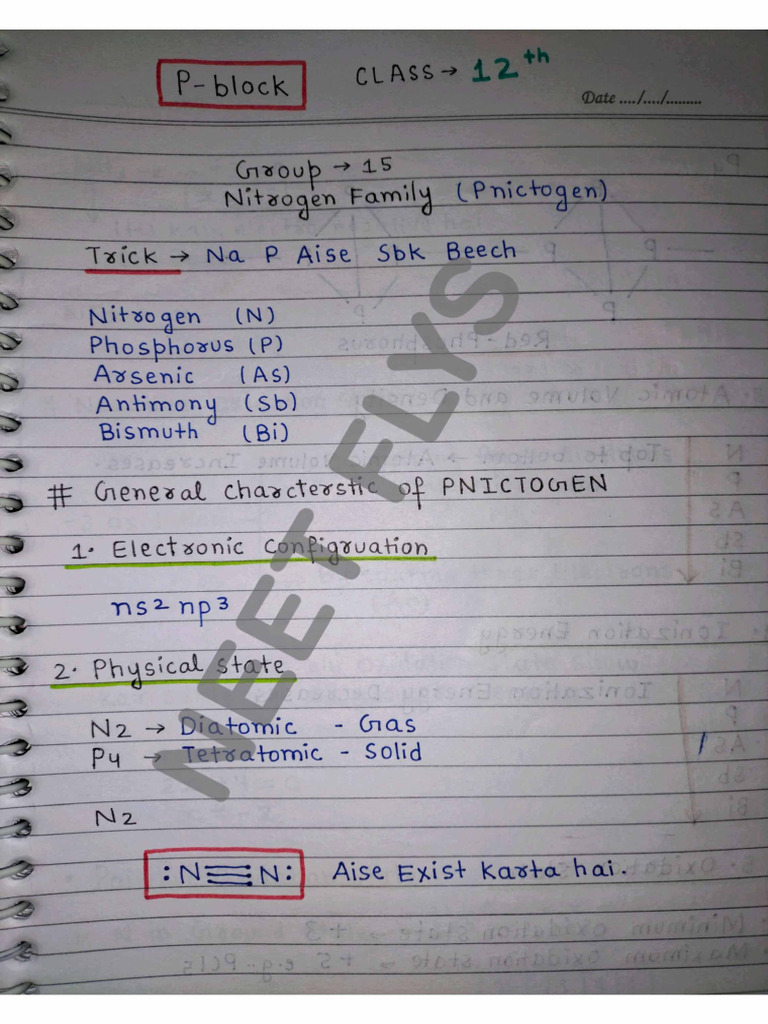 P-block CLASS → 12th
Date ..../..../.........
Group → 15
Nitrogen Family (Pnictogen)
Trick → Na P Aise Sbk Beech
Nitrogen (N)
Phosphorus (P)
Arsenic (As)
Antimony (Sb)
Bismuth (Bi)
# General Charcterstic of PNICTOGEN
1. Electronic Configruation
ns2 np3
2. Physical state
N2 → Diatomic - Gas
P4 → Tetratomic - Solid
N2
:N≡N: Aise Exist Karta hai.
NEET FLYS